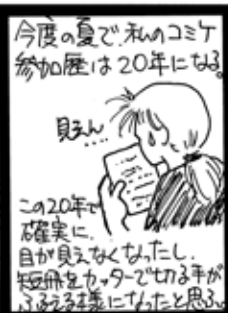 今度の夏で、私のコミケ
参加歴は20年になる。
見えん
……
この20年で
確実に、
目が見えなくなったし、
短冊をカッターで切る手が
ふるえる様になったと思う。